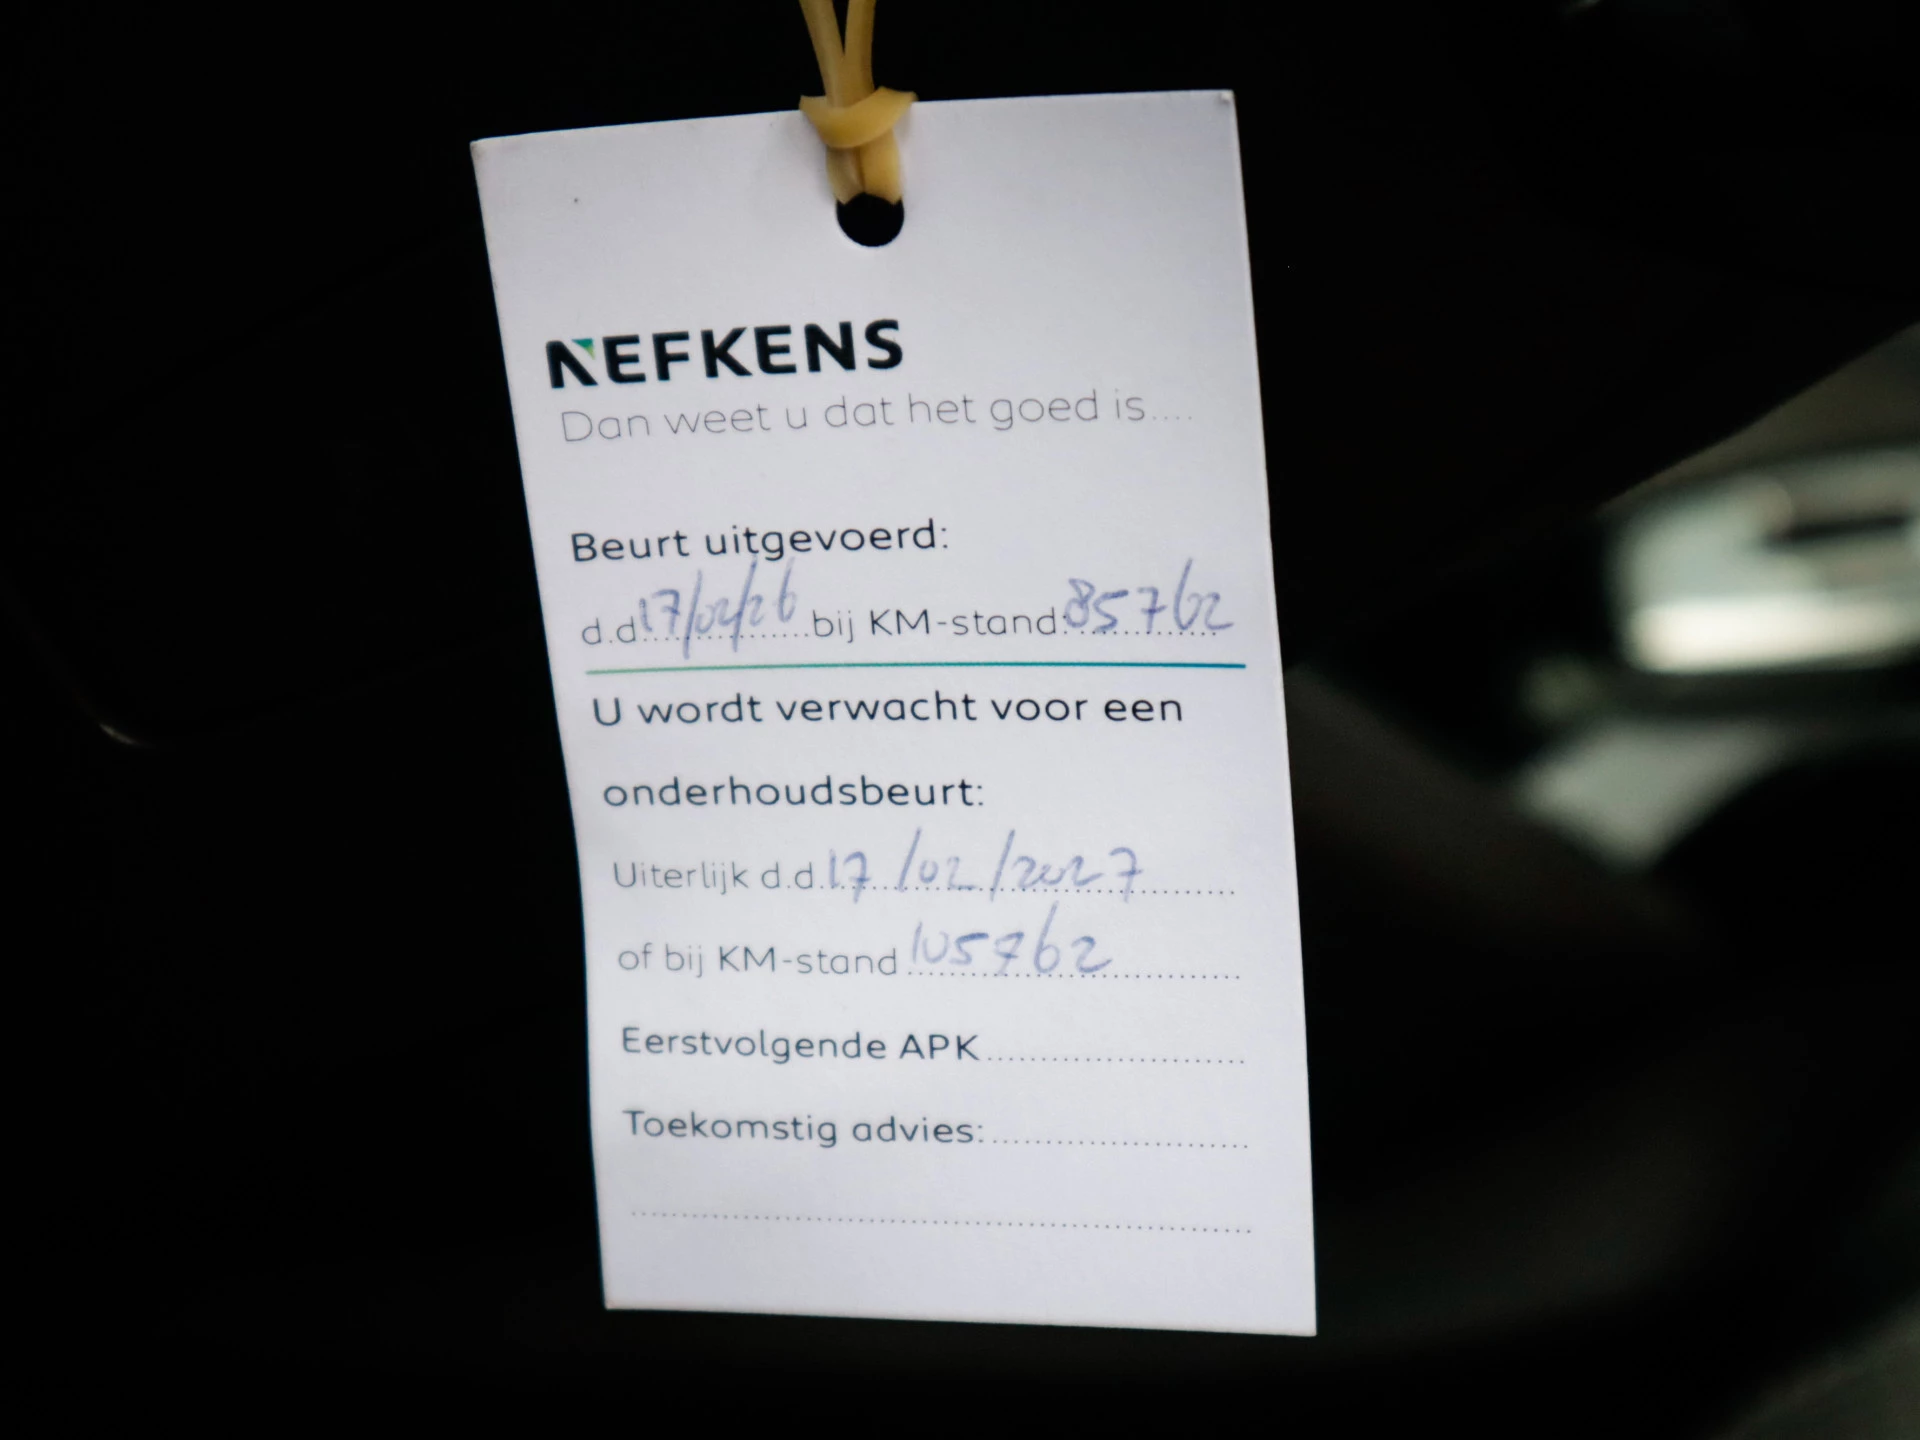 NEFKENS
Dan weet u dat het goed is....
Beurt uitgevoerd:
d.d. 17/02/26 bij KM-stand: 85762
U wordt verwacht voor een
onderhoudsbeurt:
Uiterlijk d.d. 17/02/2027
of bij KM-stand 105762
Eerstvolgende APK
Toekomstig advies: